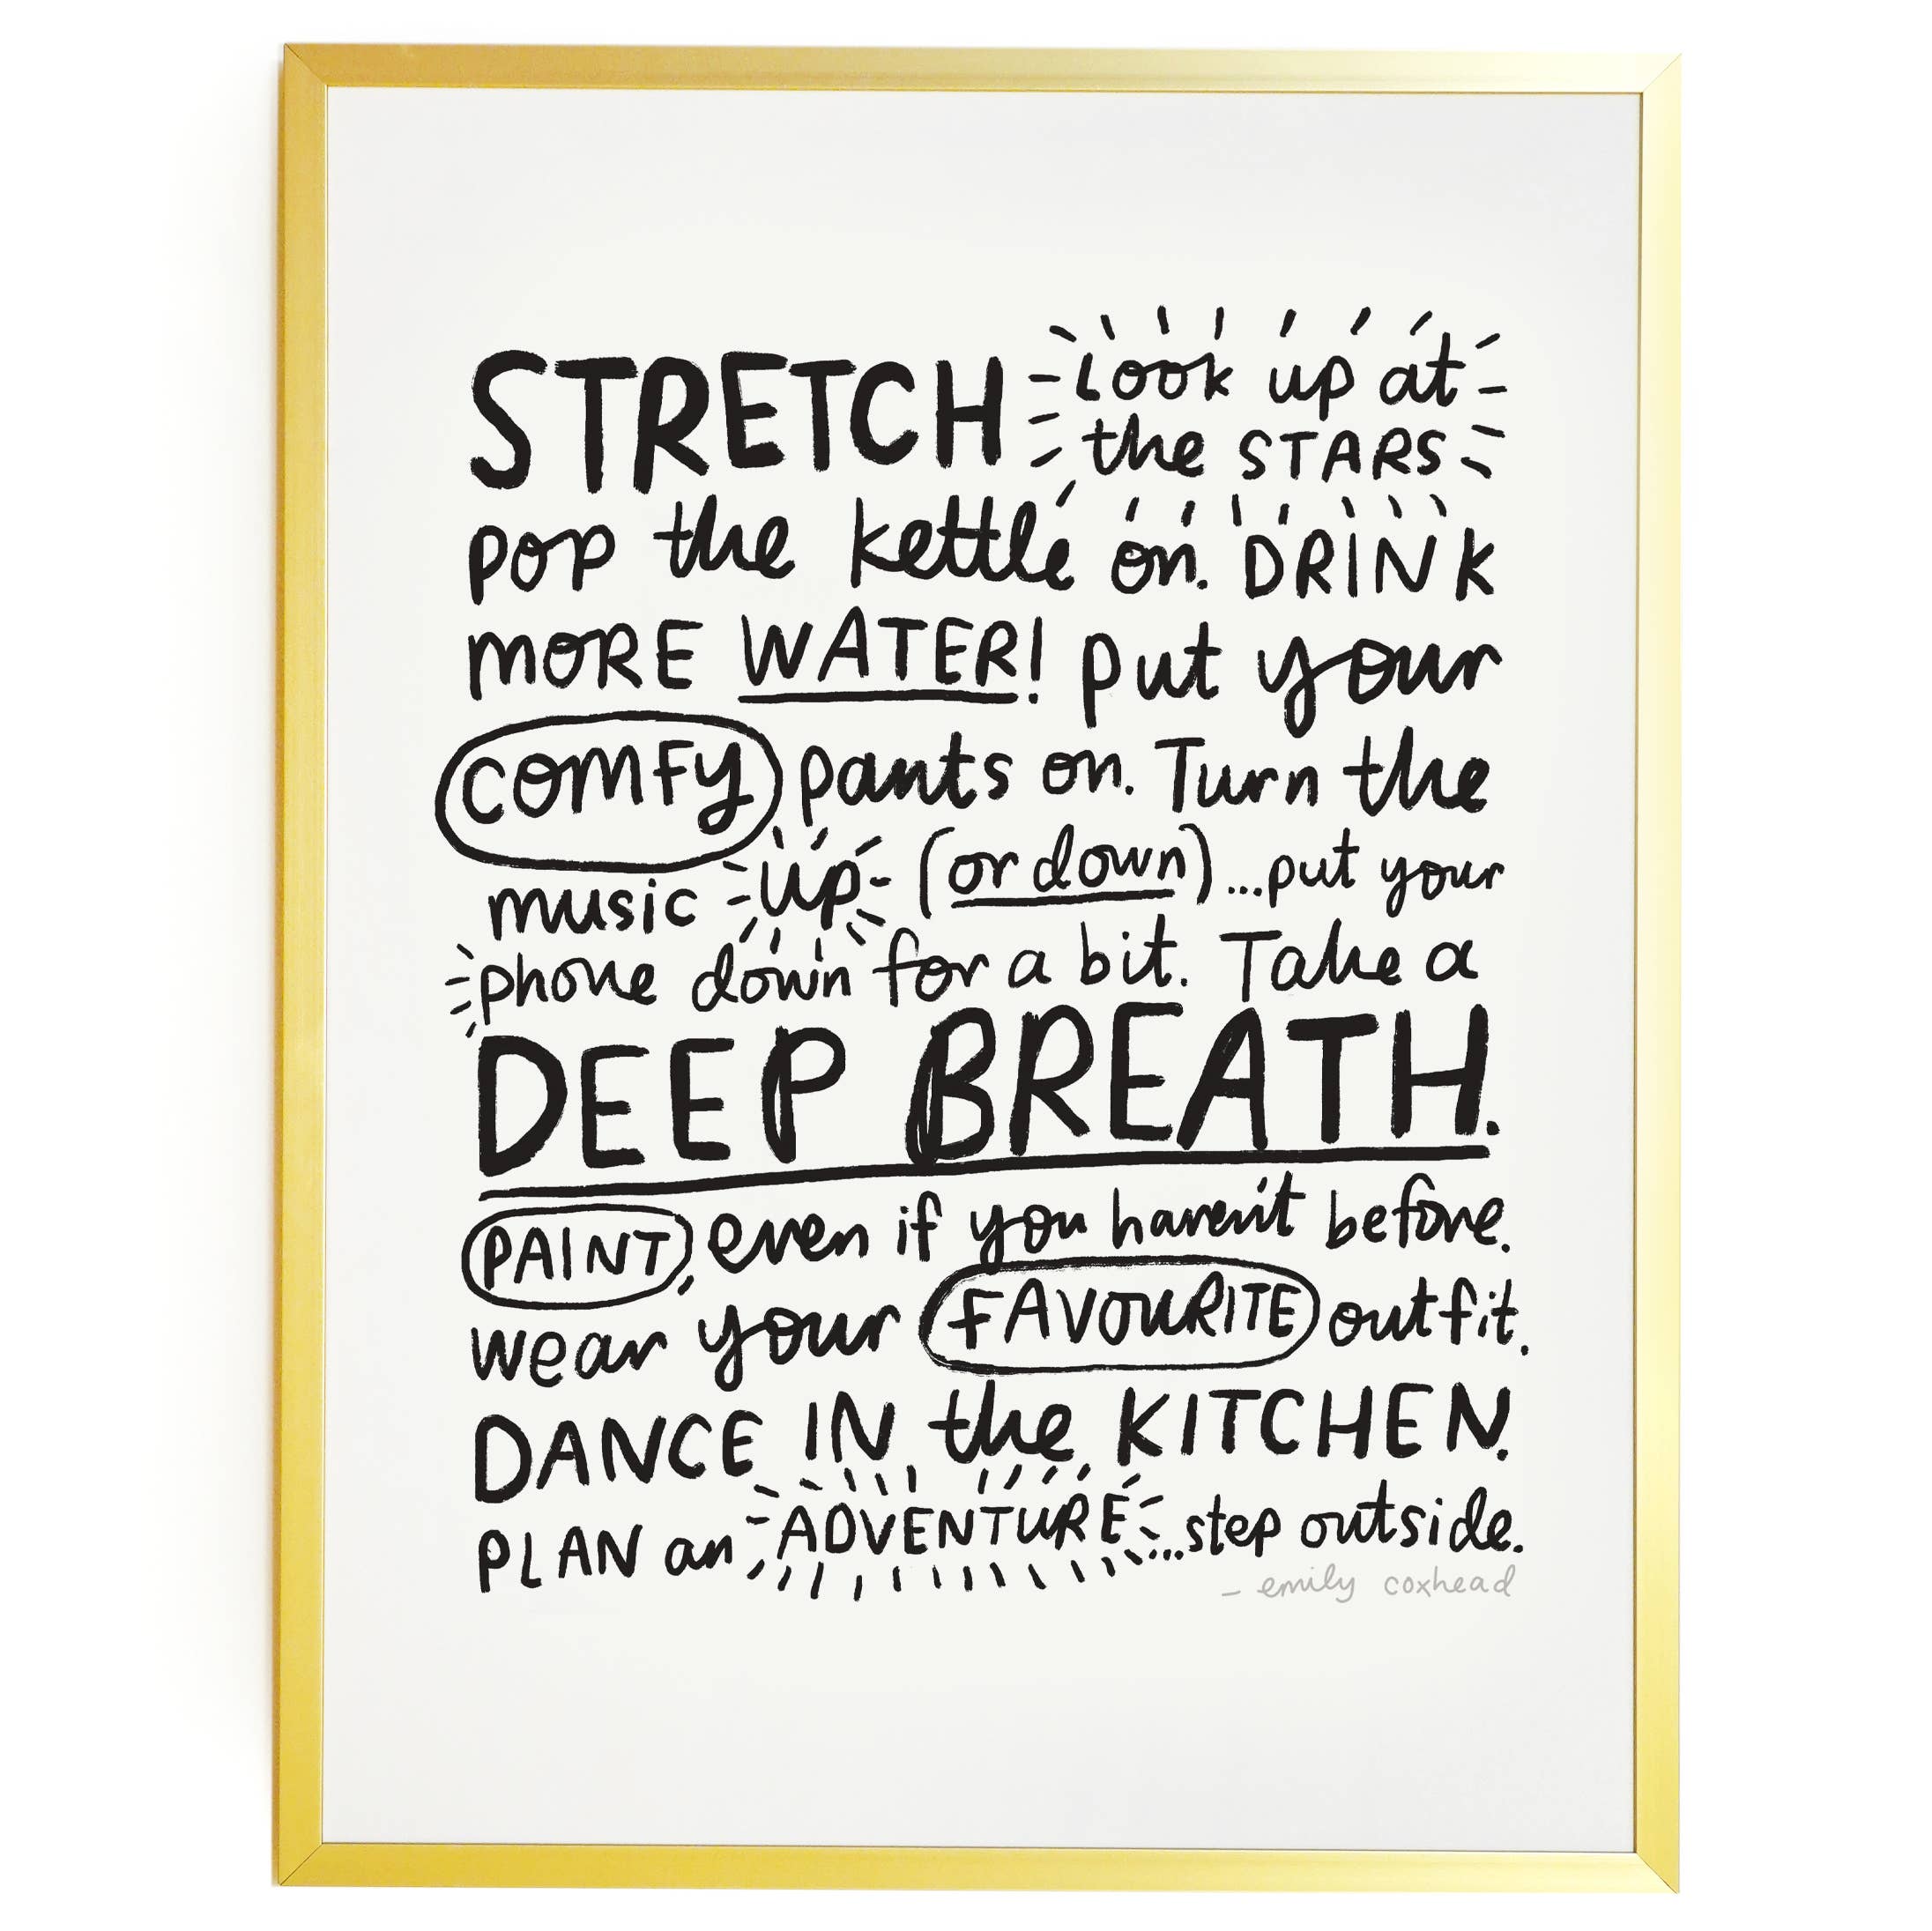 STRETCH Look up at
the STARS
pop the kettle on. DRINK
MORE WATER! put your
COMFY pants on. Turn the
music up (or down)...put your
phone down for a bit. Take a
DEEP BREATH.
PAINT, even if you haven't before.
wear your FAVOURITE outfit.
DANCE IN the KITCHEN.
PLAN an ADVENTURE...step outside.
- emily coxhead